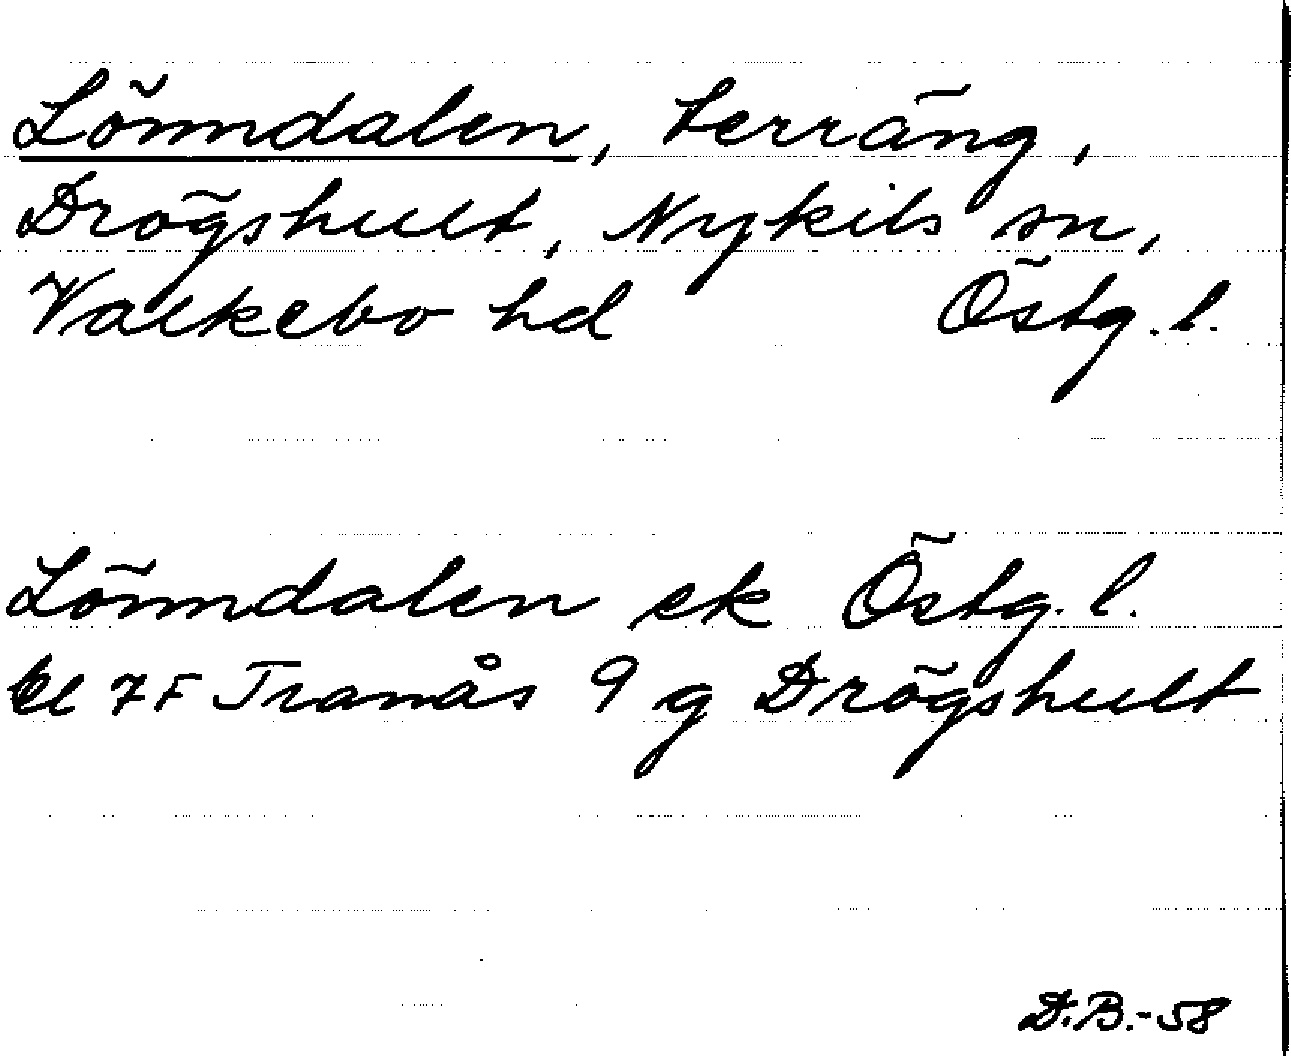 Lönndalen, terräng,
Drögshult, Nykils sn,
Valkebo hd Östg. l.
Lönndalen ek Östg. l.
bl 7F Tranås 9 g Drögshult
D.B.-58